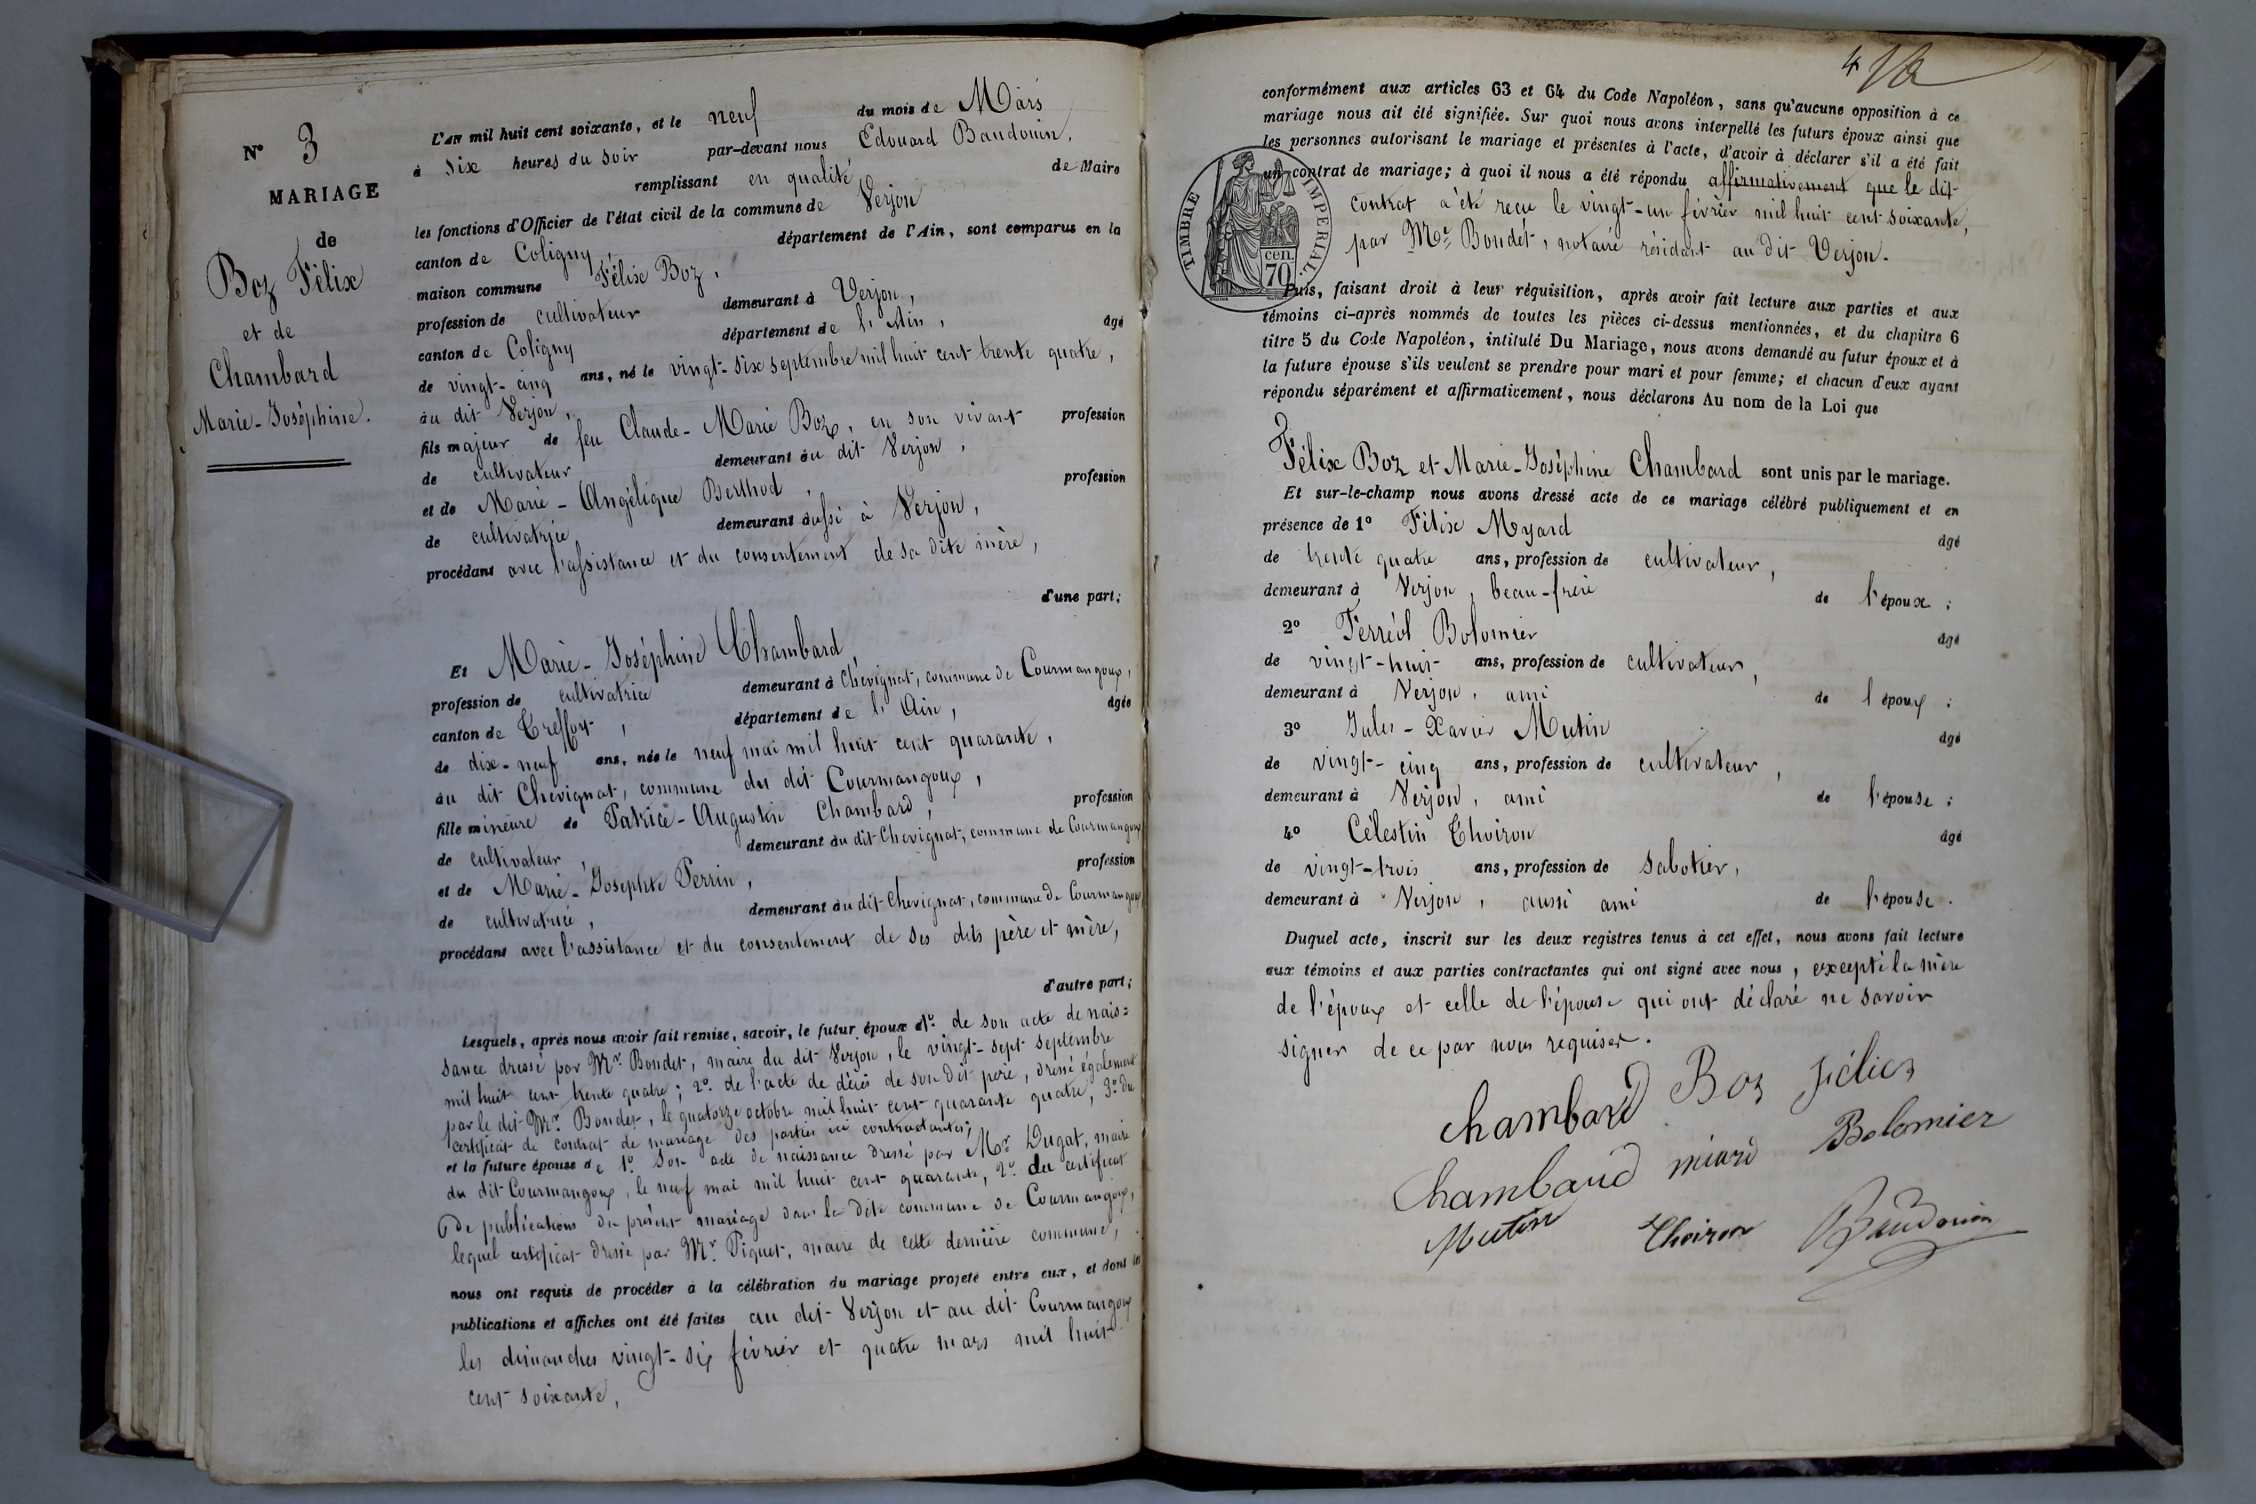 N° 3
MARIAGE
de
Boz Félix
et de
Chambard
Marie-Joséphine.
L'AN mil huit cent soixante, et le neuf du mois de Mars
à six heures du soir par-devant nous Edouard Baudouin,
remplissant en qualité de Maire
les fonctions d'Officier de l'état civil de la commune de Verjon
canton de Coligny, département de l'Ain, sont comparus en la
maison commune Félix Boz,
profession de cultivateur demeurant à Verjon,
canton de Coligny département de l'Ain, âgé
de vingt-cinq ans, né le vingt-six septembre mil huit cent trente quatre,
au dit Verjon,
fils majeur de feu Claude-Marie Boz, en son vivant profession
de cultivateur demeurant au dit Verjon,
et de Marie-Angélique Berthod, profession
de cultivatrice demeurant aussi à Verjon,
procédant avec l'assistance et du consentement de sa dite mère,
d'une part;
Et Marie-Joséphine Chambard,
profession de cultivatrice demeurant à Chevignat, commune de Courmangoux,
canton de Treffort, département de l'Ain, âgée
de dix-neuf ans, née le neuf mai mil huit cent quarante,
au dit Chevignat, commune du dit Courmangoux,
fille mineure de Patrice-Augustin Chambard, profession
de cultivateur, demeurant au dit Chevignat, commune de Courmangoux
et de Marie-Josephte Perrin, profession
de cultivatrice, demeurant au dit Chevignat, commune de Courmangoux
procédant avec l'assistance et du consentement de ses dits père et mère,
d'autre part;
Lesquels, après nous avoir fait remise, savoir, le futur époux 1° de son acte de nais=
sance dressé par Mr. Bondet, maire du dit Verjon, le vingt-sept septembre
mil huit cent trente quatre; 2° de l'acte de décès de son dit père, dressé également
par le dit Mr. Bondet, le quatorze octobre mil huit cent quarante quatre, 3° du
certificat de contrat de mariage des parties ici contractantes;
et la future épouse de 1° son acte de naissance dressé par Mr Dugat, maire
du dit Courmangoux, le neuf mai mil huit cent quarante, 2° du certificat
de publications du présent mariage dans la dite commune de Courmangoux,
lequel certificat dressé par Mr Piquet, maire de cette dernière commune,
nous ont requis de procéder à la célébration du mariage projeté entre eux, et dont les
publications et affiches ont été faites au dit Verjon et au dit Courmangoux
les dimanches vingt-six février et quatre mars mil huit
cent soixante,
4
conformément aux articles 63 et 64 du Code Napoléon, sans qu'aucune opposition à ce
mariage nous ait été signifiée. Sur quoi nous avons interpellé les futurs époux ainsi que
les personnes autorisant le mariage et présentes à l'acte, d'avoir à déclarer s'il a été fait
un contrat de mariage; à quoi il nous a été répondu affirmativement que le dit
contrat a été reçu le vingt-un février mil huit cent soixante,
par Me Bondet, notaire résidant au dit Verjon.
TIMBRE IMPERIAL
cen.
70
Puis, faisant droit à leur réquisition, après avoir fait lecture aux parties et aux
témoins ci-après nommés de toutes les pièces ci-dessus mentionnées, et du chapitre 6
titre 5 du Code Napoléon, intitulé Du Mariage, nous avons demandé au futur époux et à
la future épouse s'ils veulent se prendre pour mari et pour femme; et chacun d'eux ayant
répondu séparément et affirmativement, nous déclarons Au nom de la Loi que
Félix Boz et Marie-Joséphine Chambard sont unis par le mariage.
Et sur-le-champ nous avons dressé acte de ce mariage célébré publiquement et en
présence de 1° Félix Myard âgé
de trente quatre ans, profession de cultivateur,
demeurant à Verjon, beau-frère de l'époux;
2° Ferréol Bolomier âgé
de vingt-huit ans, profession de cultivateur,
demeurant à Verjon, ami de l'époux;
3° Jules-Xavier Mutin âgé
de vingt-cinq ans, profession de cultivateur,
demeurant à Verjon, ami de l'épouse;
4° Célestin Thoiron âgé
de vingt-trois ans, profession de sabotier,
demeurant à Verjon, aussi ami de l'épouse.
Duquel acte, inscrit sur les deux registres tenus à cet effet, nous avons fait lecture
aux témoins et aux parties contractantes qui ont signé avec nous, excepté la mère
de l'époux et celle de l'épouse qui ont déclaré ne savoir
signer de ce par nous requises.
Chambard Boz félix
Chambard miard Bolomier
Mutin Thoiron Baudouin